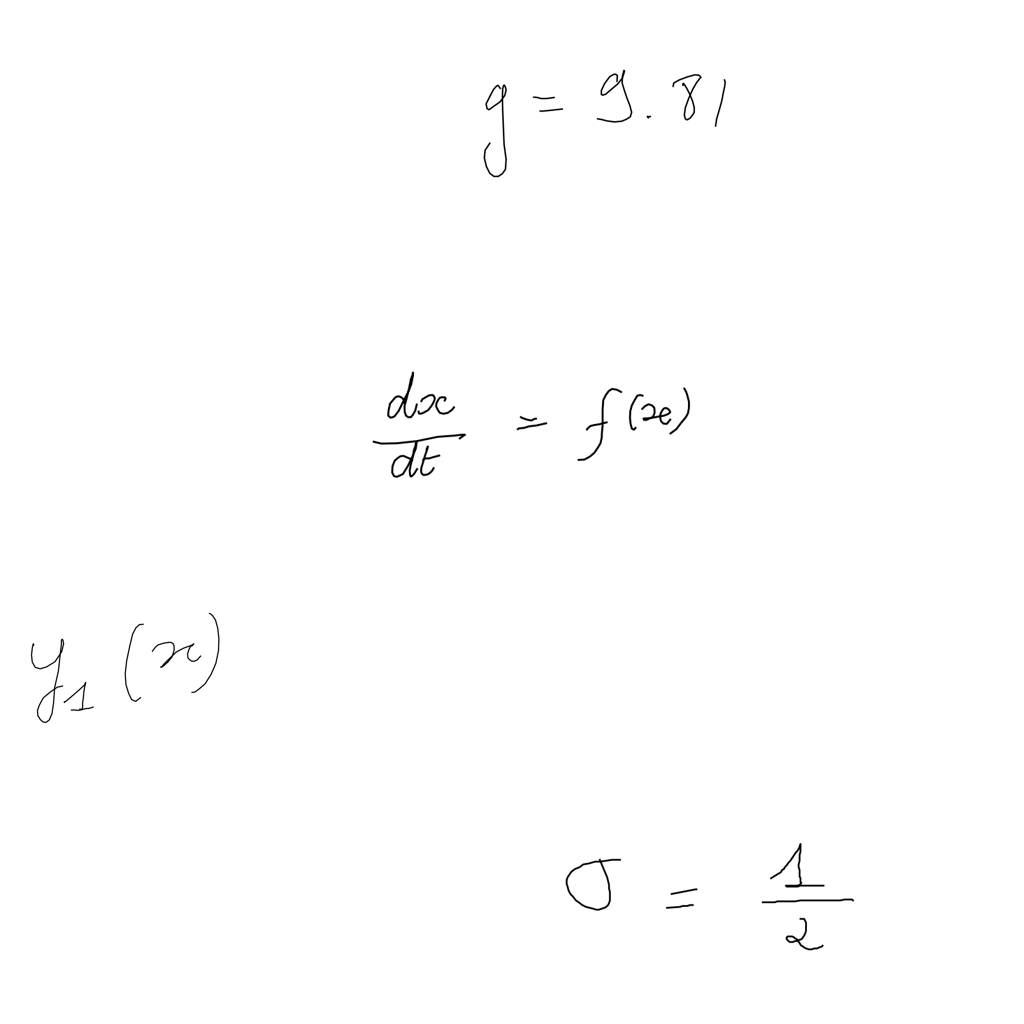 g = 9.81
dx/dt = f(x)
y₁(x)
σ = 1/2